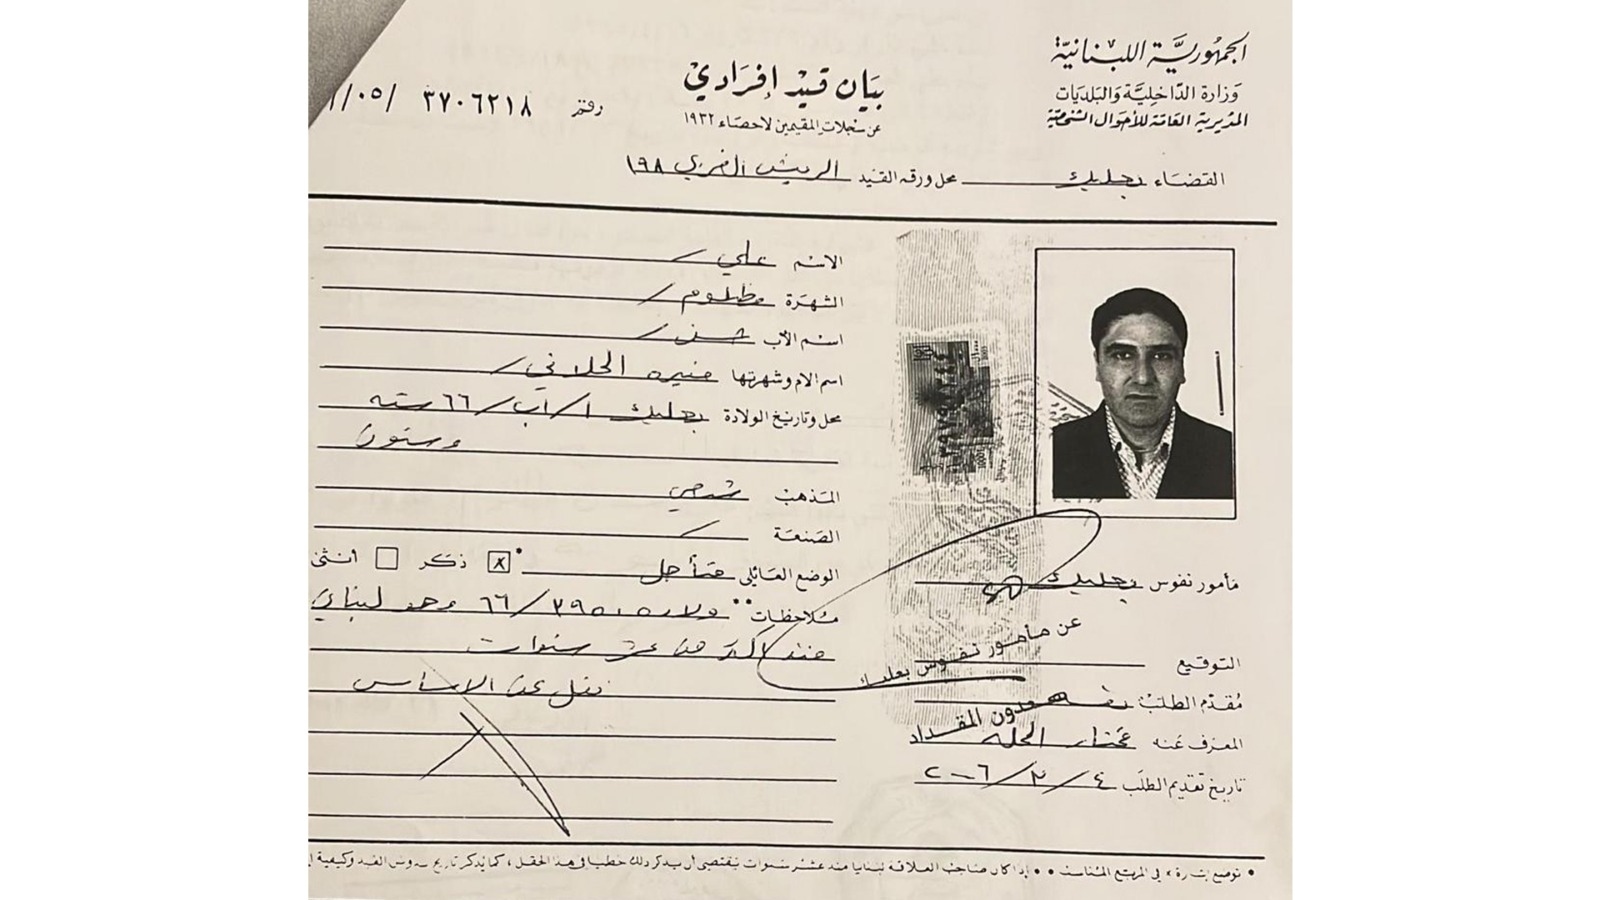 الجمهوريّة اللبنانيّة
وزارة الداخليّة والبلديات
المديرية العامة للأحوال الشخصيّة
بيان قيد إفرادي
عن سجلات المقيمين لاحصاء ١٩٣٢
رقم ٣٧٠٦٢١٨ /٠٥/
القضاء بعلبك محل ورقم القيد الريش الغربي ١٩٨
الاسم علي
الشهرة مظلوم
اسم الأب حسن
اسم الام وشهرتها منيره الحلاني
محل وتاريخ الولادة بعلبك ١/آب/٦٦ سته
وستون
المذهب شيعي
الصنعة
الوضع العائلي متأهل * ذكر انثى
ملاحظات ** ولاده ٣٩٥٠/٦٦ وهو لبناني
منذ اكثر من عشر سنوات
نقل عن الاساس
مأمور نفوس بعلبك
عن مأمور نفوس بعلبك
التوقيع
مُقدّم الطلب
المعرف عنه مختار المحله
سعدون المقداد
تاريخ تقديم الطلب ٤/٢/٢٠٠٦
* توضع إشارة × في المربع المناسب ** إذا كان صاحب العلاقة لبنانيا منذ عشر سنوات يقتضى أن يذكر ذلك خطيا في هذا الحقل، كما يذكر تاريخ القيد وكيفية